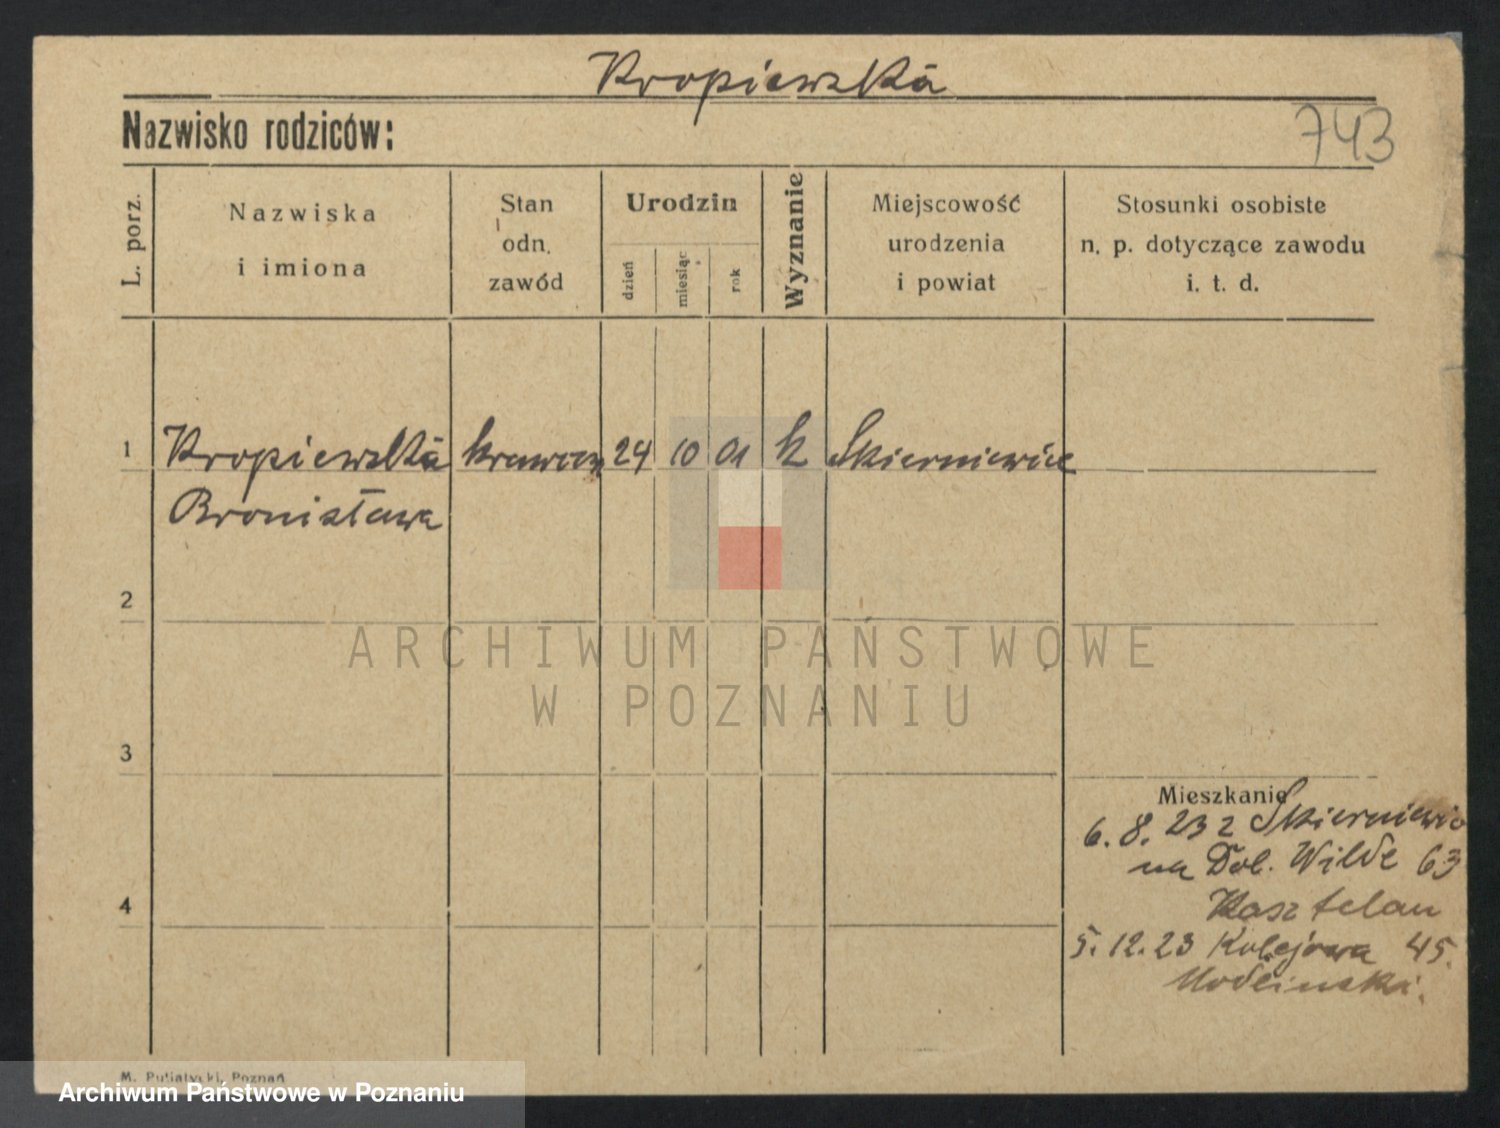 Kropiewska
Nazwisko rodziców:
743
L. porz.
Nazwiska
i imiona
Stan
odn.
zawód
Urodzin
dzień
miesiąc
rok
Wyznanie
Miejscowość
urodzenia
i powiat
Stosunki osobiste
n. p. dotyczące zawodu
i. t. d.
1 Kropiewska 24 10 01 k Skierniewice
Bronisława
2
ARCHIWUM PAŃSTWOWE
W POZNANIU
3
Mieszkanie
6. 8. 23 z Skierniewic
na Dol. Wilde 63
4
Kasztelan
5. 12. 23 Kolejowa 45.
M. Putiatycki, Poznań
Archiwum Państwowe w Poznaniu